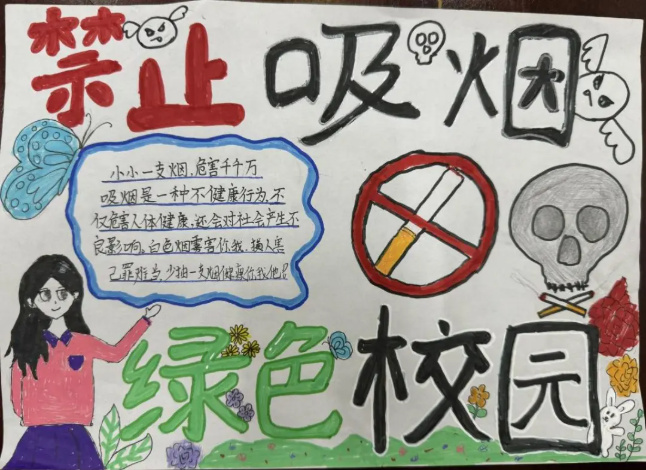 禁止吸烟
小小一支烟,危害千千万
吸烟是一种不健康行为,不
仅危害人体健康,还会对社会产生不
良影响。白色烟雾害你我,损人害
己罪难当,少抽一支烟健康你我他!
绿色校园